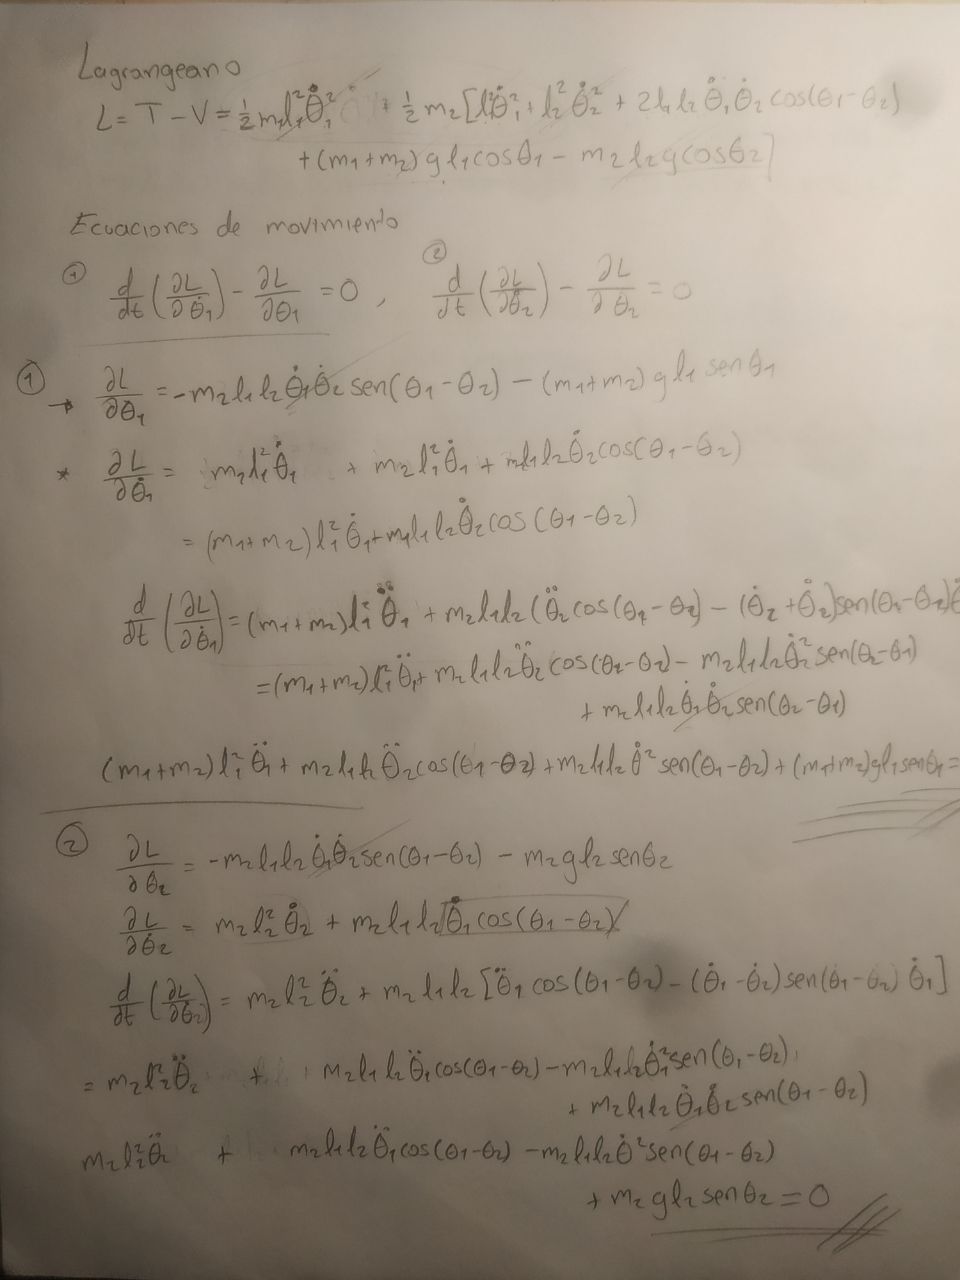 Lagrangeano
L = T - V = ½ m₁l₁²θ̇₁² + ½ m₂ [l₁²θ̇₁² + l₂² θ̇₂² + 2l₁l₂ θ̇₁θ̇₂ cos(θ₁-θ₂)
+ (m₁+m₂) g l₁ cosθ₁ - m₂l₂g cosθ₂]
Ecuaciones de movimiento
① d/dt (∂L/∂θ̇₁) - ∂L/∂θ₁ = 0 , ② d/dt (∂L/∂θ̇₂) - ∂L/∂θ₂ = 0
① → ∂L/∂θ₁ = -m₂l₁l₂ θ̇₁θ̇₂ sen(θ₁-θ₂) - (m₁+m₂) g l₁ senθ₁
* ∂L/∂θ̇₁ = m₂l₁²θ̇₁ + m₂l₁²θ̇₁ + m₂l₁l₂θ̇₂cos(θ₁-θ₂)
= (m₁+m₂) l₁² θ̇₁ + m₂l₁l₂θ̇₂ cos(θ₁-θ₂)
d/dt (∂L/∂θ̇₁) = (m₁+m₂)l₁² θ̈₁ + m₂l₁l₂ (θ̈₂ cos(θ₂-θ₂) - (θ̇₂+θ̇₂)sen(θ₂-θ₂)θ̇
= (m₁+m₂)l₁²θ̈₁ + m₂l₁l₂θ̈₂ cos(θ₂-θ₂) - m₂l₁l₂θ̇₂² sen(θ₂-θ₁)
+ m₂l₁l₂θ̇₁θ̇₂sen(θ₂-θ₁)
(m₁+m₂)l₁² θ̈₁ + m₂l₁l₂ θ̈₂cos(θ₁-θ₂) + m₂l₁l₂ θ̇² sen(θ₁-θ₂) + (m₁+m₂)gl₁senθ₁ =
② ∂L/∂θ₂ = -m₂l₁l₂ θ̇₁θ̇₂sen(θ₁-θ₂) - m₂gl₂ senθ₂
∂L/∂θ̇₂ = m₂l₂² θ̇₂ + m₂l₁l₂θ̇₁cos(θ₁-θ₂)
d/dt (∂L/∂θ̇₂) = m₂l₂² θ̈₂ + m₂l₁l₂ [θ̈₁ cos(θ₁-θ₂) - (θ̇₁-θ̇₂)sen(θ₁-θ₂) θ̇₁]
= m₂l₂²θ̈₂ + m₂l₁l₂θ̈₁cos(θ₁-θ₂) - m₂l₁l₂θ̇₁²sen(θ₁-θ₂)
+ m₂l₁l₂ θ̇₁θ̇₂sen(θ₁-θ₂)
m₂l₂²θ̈₂ + m₂l₁l₂θ̈₁cos(θ₁-θ₂) - m₂l₁l₂θ̇²sen(θ₁-θ₂)
+ m₂gl₂senθ₂ = 0